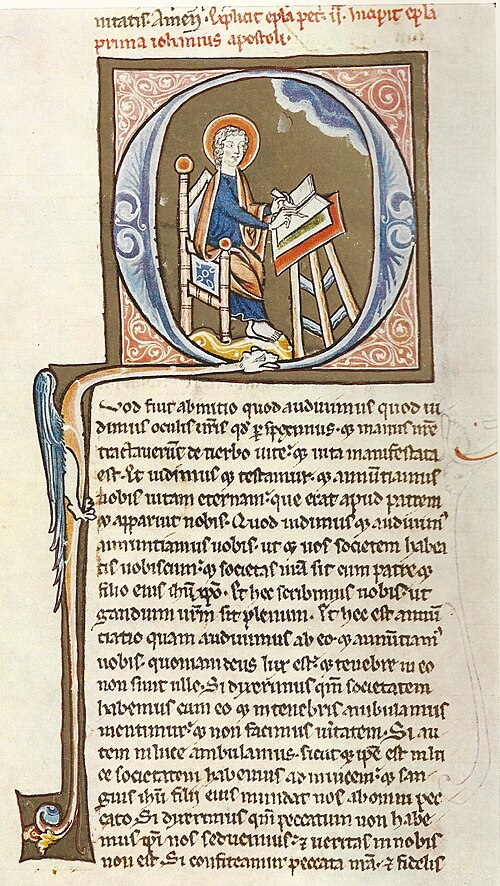 uitatis. Amen. Explicit epl'a pet'. ij. Incipit epl'a
prima iohannis apostoli.
Quod fuit ab initio quod audiuimus quod ui
dimus oculis n'ris q'd p'speximus. & manus n're
tractauerunt de uerbo uite: & uita manifestata
est. Et uidimus & testamur. & annuntiamus
uobis uitam eternam: que erat apud patrem
& apparuit nobis. Quod uidimus & audiuim'
annuntiamus uobis. ut & uos societem habea
tis nobiscum: & societas n'ra sit cum patre &
filio eius ih'u xp'o. Et hec scribimus uobis: ut
gaudium u'rm sit plenum. Et hec est annu'
ciatio quam audiuimus ab eo. & annuntiam'
uobis. quoniam deus lux est: & tenebre in eo
non sunt ulle. Si dixerimus qm' societatem
habemus cum eo & in tenebris ambulamus
mentimur: & non facimus u'itatem. Si au
tem in luce ambulamus. sicut & ip'e est in lu
ce societatem habemus ad inuicem: & san
guis ih'u filii eius mundat nos ab omni pec
cato. Si dixerimus qm' peccatum non habe
mus ip'i nos seducimus: & ueritas in nobis
non est. Si confiteamur peccata n'ra. & fidelis